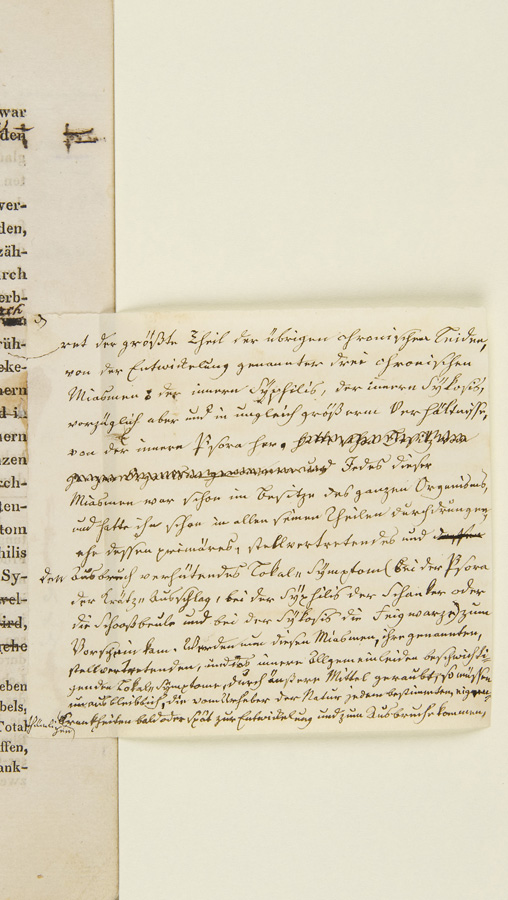 war
den
ver-
den,
zäh-
rch
erb-
rüh-
eke-
nern
d i
nern
zen
sch-
ten-
tom
hilis
Sy-
wel-
ird,
che
eben
bels,
Total
ffen,
ank-
ret der größte Theil der übrigen chronischen Leiden,
von der Entwickelung genannter drei chronischen
Miasmen: der innern Syphilis, der innern Sykosis,
vorzüglich aber und in ungleich größerm Verhältnisse,
von der innern Psora her.
und Jedes dieser
Miasmen war schon im Besitze des ganzen Organisms,
und hatte ihn schon in allen seinen Theilen durchdrungen
ehe dessen primäres, stellvertretendes und
den Ausbruch verhütendes Lokal-Symptom (bei der Psora
der Krätz-Ausschlag, bei der Syphilis der Schanker oder
die Schooßbeule und bei der Sykosis die Feigwarze) zum
Vorschein kam. Werden nun diesen Miasmen, ihre genannten,
stellvertretenden, und das innere Allgemeinleiden beschwichti-
genden Lokal-Symptome, durch äußere Mittel geraubt, so müssen
unausbleiblich, die vom Urheber der Natur jedem bestimmten, eigen-
thümlichen Krankheiten bald oder spät zur Entwickelung und zum Ausbruche kommen,